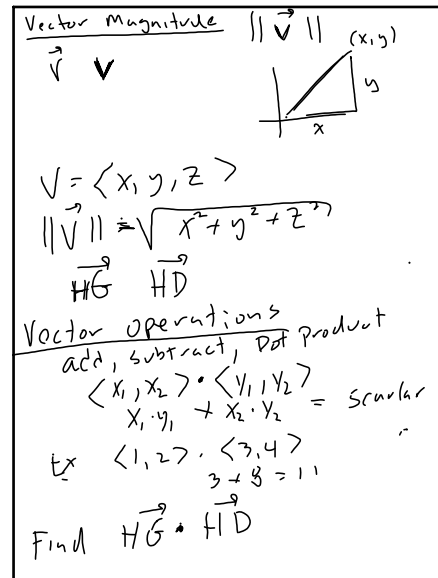 Vector Magnitude ||v⃗||
v⃗ v (x,y)
y
x
V = <x, y, z>
||V⃗|| = √x² + y² + z²
HG⃗ HD⃗
Vector operations
add, subtract, Dot product
<x₁, x₂> · <y₁, y₂>
x₁·y₁ + x₂·y₂ = scarlar
Ex <1,2> · <3,4>
3 + 8 = 11
Find HG⃗ · HD⃗